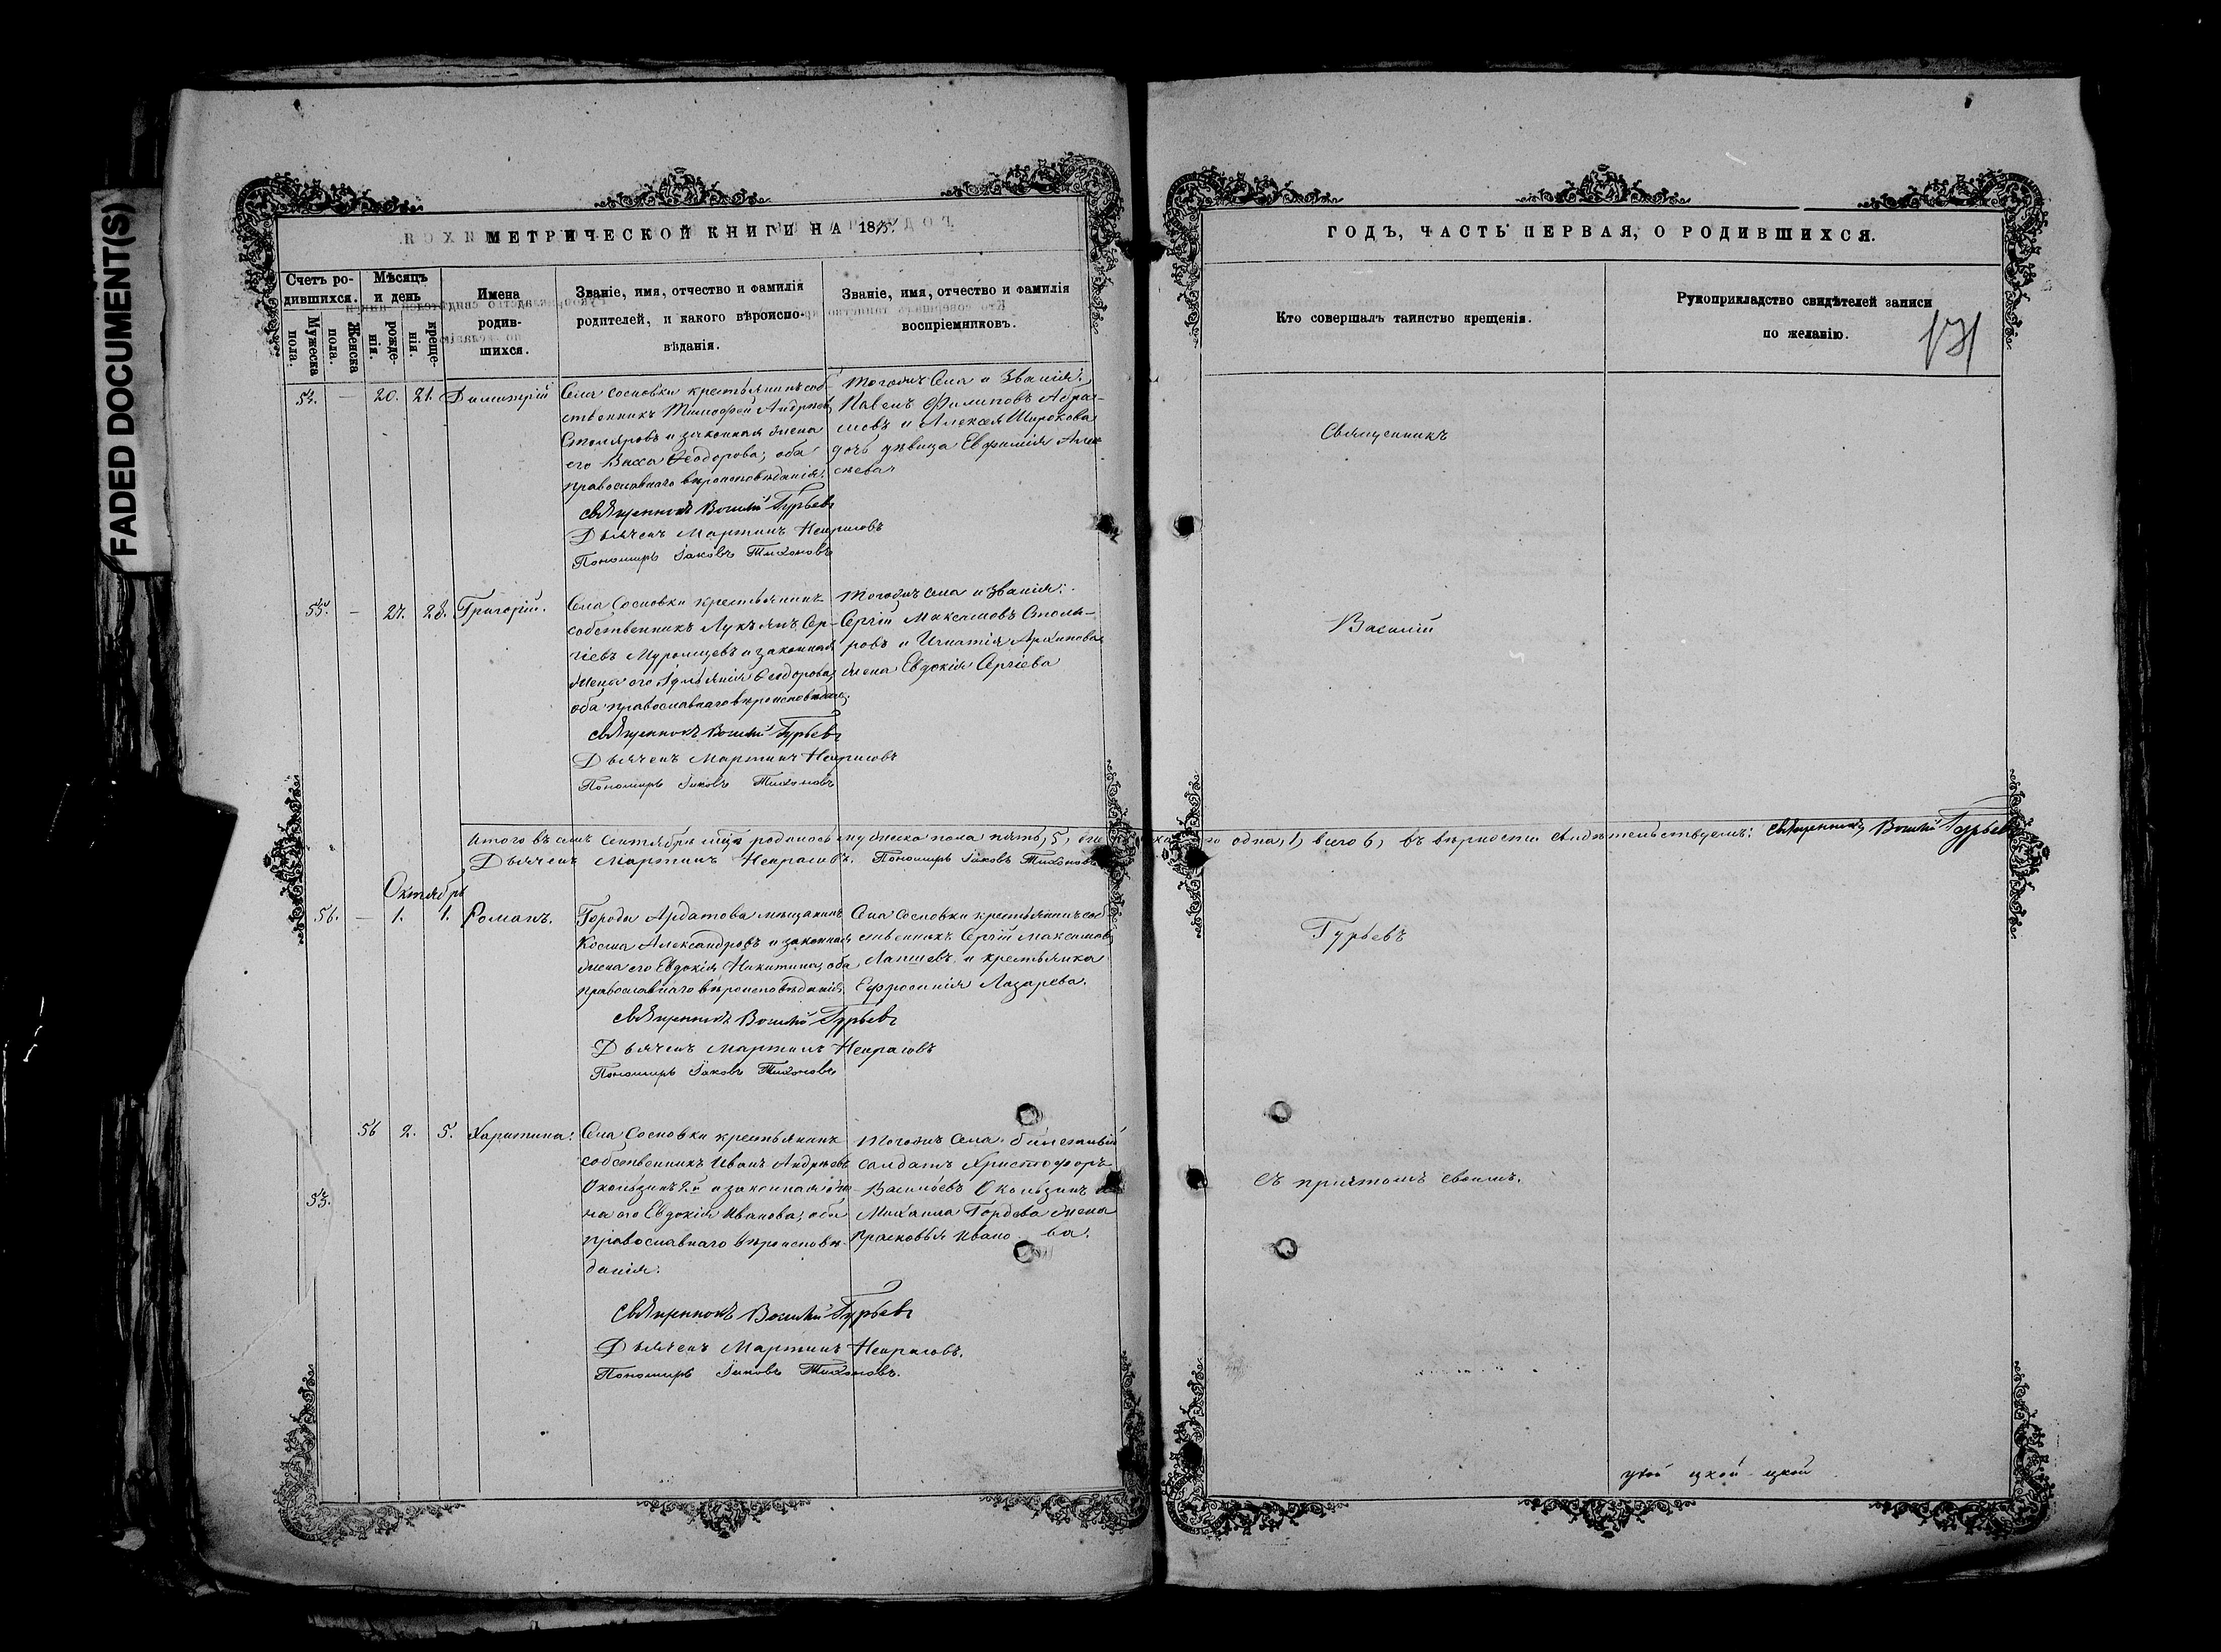 FADED DOCUMENT(S)
МЕТРИЧЕСКОЙ КНИГИ НА 18
Счетъ ро-
дившихся.
Мужеска
пола.
Женска
пола.
Мѣсяцъ
и день
рожде-
нія.
креще-
нія.
Имена
родив-
шихся.
Званіе, имя, отчество и фамилія
родителей, и какого вѣроиспо-
вѣданія.
Званіе, имя, отчество и фамилія
воспріемниковъ.
54. — 20. 21. Димитрій
Села Сосновки крестьянинъ соб
ственникъ Тимофей Андреевъ
Столяровъ и законная жена
его Васса Ѳеодорова; оба
православнаго вѣроисповѣданія;
Тогожъ Села и Званія:
Павелъ Филиповъ Абра-
мовъ и Алексея Широкова
дочь дѣвица Евфимія Алек
сѣева
Священникъ Василій Гурьевъ
Дьячекъ Мартинъ Некрасовъ
Пономарь Іаковъ Тихоновъ
55. — 27. 28. Григорій.
Села Сосновки крестьянинъ
собственникъ Лукьянъ Сер-
гіевъ Муромцевъ и законная
жена его Ѳеодорова,
оба православнаго вѣроисповѣданія;
Тогожъ села и Званія:
Сергій Максимовъ Столя-
ровъ и Игнатія Архипова
жена Евдокія Сергіева
Священникъ Василій Гурьевъ
Дьячекъ Мартинъ Некрасовъ
Пономарь Іаковъ Тихоновъ
Итого въ семъ Сентябрѣ мцѣ родилось мужеска пола пять, 5, одна, 1, всего 6, въ вѣрности свидѣтельствуемъ: Священникъ Василій Гурьевъ
Дьячекъ Мартинъ Некрасовъ. Пономарь Іаковъ Тихоновъ
Октябрь
56. — 1. 1. Романъ.
Города Ардатова мѣщанинъ
Косма Александровъ и законная
жена его Евдокія Никитина, оба
православнаго вѣроисповѣданія.
Села Сосновки крестьянинъ соб
ственникъ Сергій Максимовъ
Лапшевъ и крестьянка
Ефросинія Лазарева.
Священникъ Василій Гурьевъ
Дьячекъ Мартинъ Некрасовъ
Пономарь Іаковъ Тихоновъ
56 2. 5. Харитина:
Села Сосновки крестьянинъ
собственникъ Иванъ Андреевъ
Окользинъ 2й и законная же-
на его Евдокія Иванова; оба
православнаго вѣроисповѣ-
данія.
Тогожъ Села билетный
солдатъ Христофоръ
Васильевъ Окользинъ
Михаила Гордѣева жена
Прасковья Ивано ва.
Священникъ Василій Гурьевъ
Дьячекъ Мартинъ Некрасовъ.
Пономарь Іаковъ Тихоновъ.
ГОДЪ, ЧАСТЬ ПЕРВАЯ, О РОДИВШИХСЯ.
Кто совершалъ таинство крещенія.
Рукоприкладство свидѣтелей записи
по желанію.
171
Священникъ
Василій
Гурьевъ
съ причтомъ своимъ.